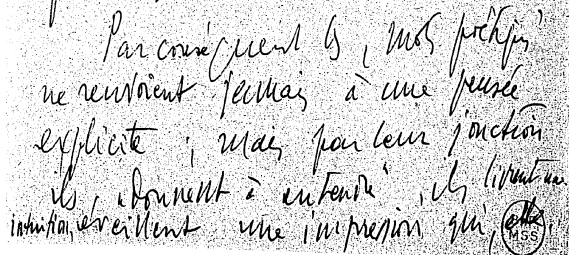 Par conséquent les "mots préfixés"
ne renvoient jamais à une pensée
explicite ; mais par leur jonction
ils "donnent à entendre", ils livrent une
intuition, éveillent une impression qui, elle
MSS